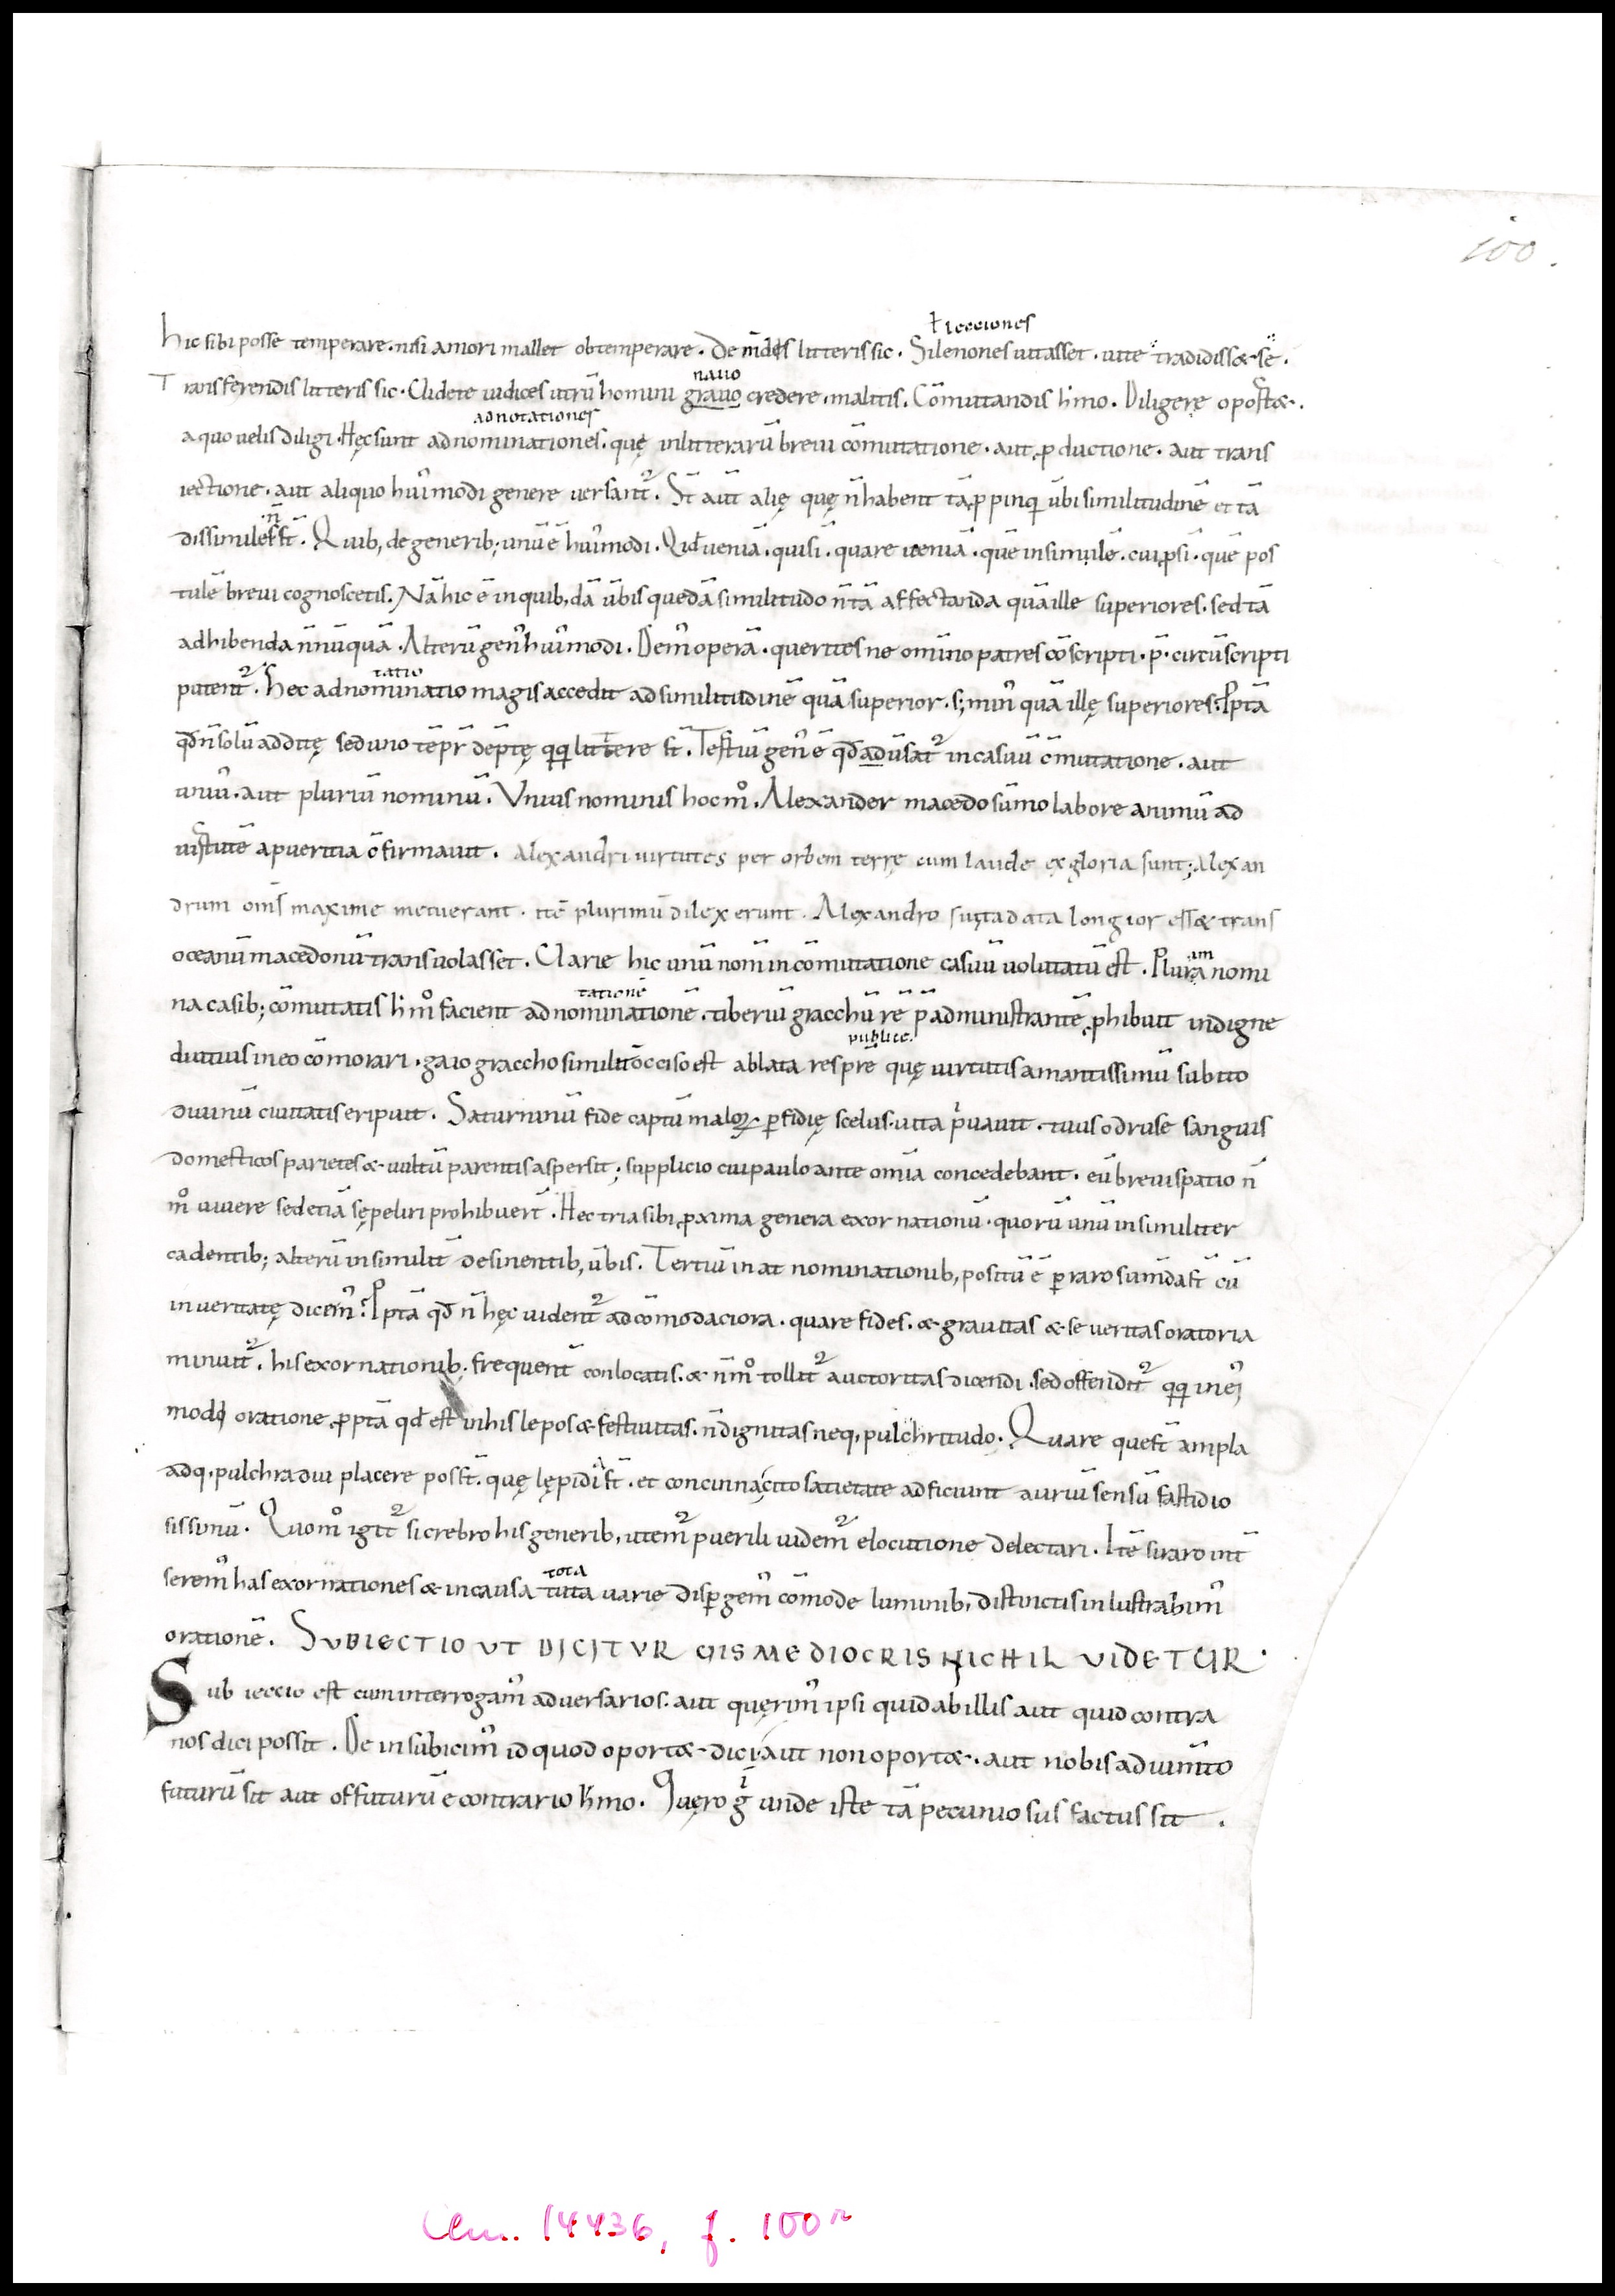 100.
ł iecciones
hic sibi posse temperare. nisi amori mallet obtemperare. De m̄dis litteris sic. Si lenones vitasset. vite tradidiss& se.
navo
Transferendis litteris sic. Videte iudices utrū homini gravo credere. malitis. Cōmutandis h̄mo. Diligere oport&.
adnotationes
a quo velis diligi. Hęc sunt adnominationes. quę in litterarū brevi cōmutatione. aut ꝓductione. aut trans
iectione. aut aliquo hui᷒modi genere versant᷑. St̄ aūt alię quę n̄ habent tā ꝓpinq̄ ūbi similitudinē et tā
n̄
dissimiles st̄. Quib, de generib; unū ē hui᷒modi. Qid veniā. qui si̅. quare veniā. quē insimulē. cui ꝓsī. quē pos
tulē brevi cognoscetis. Nā hic ē in quib,dā ūbis quedā similitudo n̄ tā affectanda quā ille superiores. sed tā
adhibenda n̄nūquā. Alterū gen᷒ hui᷒modi. Dem᷒ operā. querites ne omīno patres cōscripti. p̄. circūscripti
tatio
putent᷑. hec adnominatio magis accedit ad similitudinē quā superior. s; min᷒ quā illę superiores. Ꝓptā
qd̄ n̄ solū additę sed uno tēpr̄ dēptę qq̄ litterę st̄. Tertiū gen᷒ ē qd̄ ad ūsat᷑ in casuū c̄mutatione. aut
uni᷒. aut pluriū nominū. Vnius nominis hoc m̊. Alexander macedo sūmo labore animū ad
virtutē a pueritia c̄firmavit. Alexandri virtutes per orbem terrę cum laude ex gloria sunt; Alexan
drum om̄s maxime metuerant. itē plurimū dilexerunt. Alexandro si vita data longior ess& trans
oceanū macedonū transvolasset. Varie hic unū nom̄ in cōmutatione casuū volutatū est. Plura nomi
im
na casib; cōmutatis h̄ m̊ facient adnominationē. tiberiū gracchū rē p̄ administrantē ꝓhibuit indigne
tationē
publice.
diutius in eo cōmorari. gaio graccho similit̄ occiso est ablata res prē quę virtutis amantissimū subito
divinū civitatis eripuit. Saturninū fide captū maloꝝ ꝑfidię scelus. vita pͥvavit. tuus o druse sanguis
domesticos parietes & vultū parentis aspersit; supplicio cui paulo ante om̄ia concedebant. eū brevi spatio n̄
m̊ vivere sed etiā sępeliri prohibuer̄t. Hec tria sibi ꝓxima genera exornationū. quorū unū in similiter
cadentib; alterū in similit̄ desinentib, ūbis. Tertiū in at nominationib, positū ē ꝑraro sumda st̄ cū
in veritatę dicem᷒. Ꝓptā qd̄ n̄ hęc vident᷑ adcōmodaciora. quare fides. & gravitas & severitas oratoria
minuit᷑. his exornationib; frequent̄ conlocatis. & n̄ m̊ tollit᷑ auctoritas dicendi. sed offendit᷑ qq̄ in ei᷒
modi oratione ꝓptā qd̄ est in his lepos & festivitas. n̄ dignitas neq, pulchritudo. Quare que st̄ ampla
adq, pulchra diu placere poss̄t. quę lępida st̄. et concinna cito satietate adficiunt auriū sensū fastidio
sissimū. Quom̊ igit᷑ si crebro his generib, utem᷑ puerili videm᷑ elocutione delectari. Itē si raro int̄
tota
serem᷒ has exornationes & in causa tuta varie disꝑgem᷒ cōmode luminib, distinctis inlustrabim᷒
orationē. SUBIECTIO UT DICITUR VIS MEDIOCRIS NICHIL VIDETUR.
Sub ieccio est cum interrogam᷒ adversarios. aut quęrim᷒ ipsi quid ab illis aut quid contra
nos dici possit. De in subicim᷒ id quod oport& dici aut non oport&. aut nobis adium̄to
futurū sit aut offuturū e contrario h̄mo. Quęro gͥ unde iste tā pecuniosus factus sit.
Clm. 14436, f. 100r